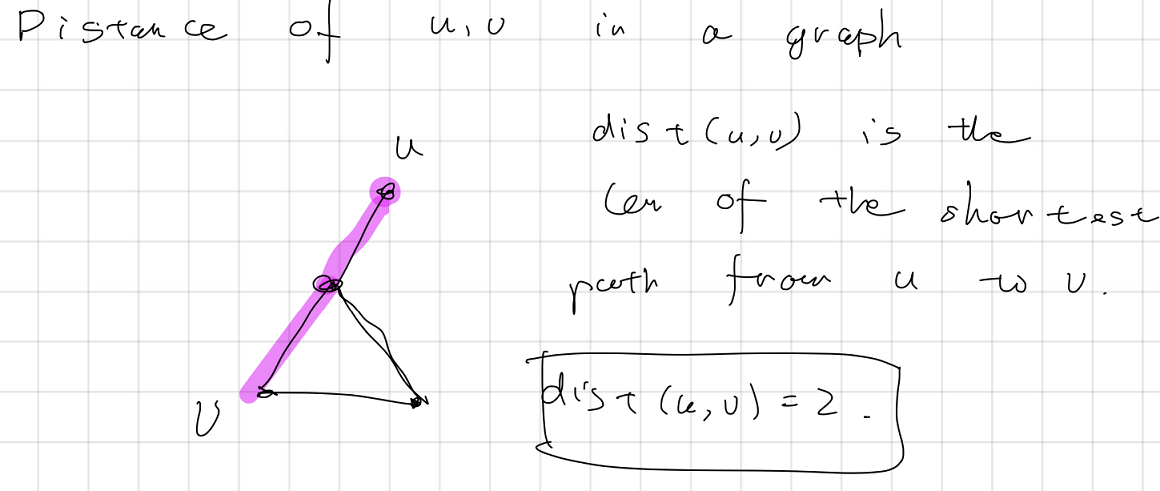 Distance of u, v in a graph
u
dist(u,v) is the
len of the shortest
path from u to v.
v
dist(u,v) = 2.